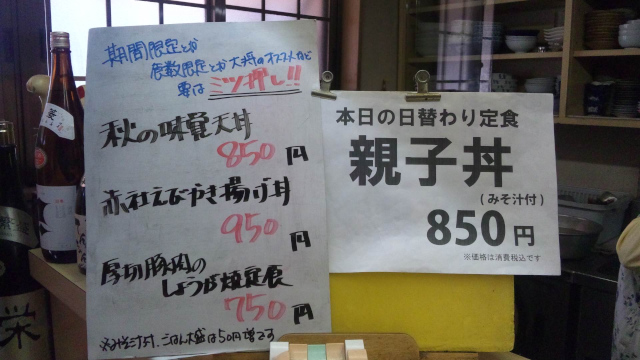 期間限定とか
数限定とか大将のオススメなど
要は ミツ押し!!
秋の味覚天丼
850円
赤社えびかき揚げ丼
950円
厚切豚肉の
しょうが焼定食
750円
※みそ汁付、ごはん大盛は50円増です
本日の日替わり定食
親子丼
(みそ汁付)
850円
※価格は消費税込です
栄